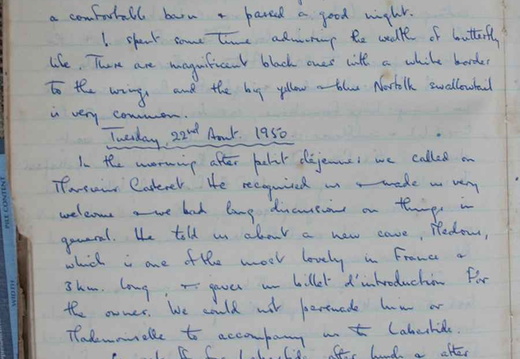 a comfortable barn & passed a good night.
I spent some time admiring the wealth of butterfly
life. There are magnificent black ones with a white border
to the wings and the big yellow & blue Norfolk swallowtail
is very common.
Tuesday 22nd Aout 1950
In the morning after petit déjeuner we called on
Monsieur Casteret. He recognised us & made us very
welcome & we had long discussions on things in
general. He told us about a new cave, Medous,
which is one of the most lovely in France &
3 km. long, & gave us billet d'introduction for
the owner. We could not persuade him or
Mademoiselle to accompany us to Labastide.
for Labastide after lunch & after